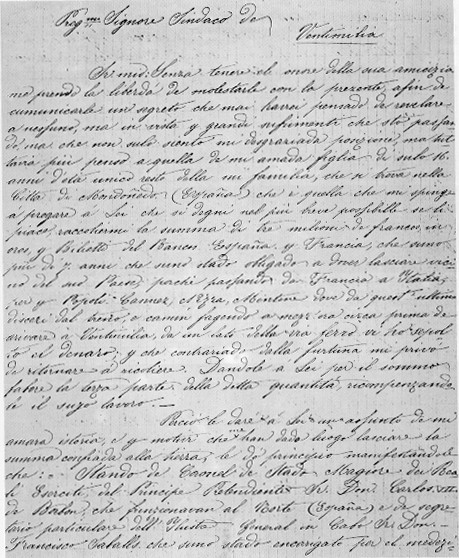 Preg.me Signore Sindaco de
Ventimilia
Sr. mio: Senza tenere el onore della sua amicizia
mi prendo la libertá de molestarle con la prezente, afin de
cumunicarle un segreto che mai havrei pensado de revelare
a nesuno, ma in vista y grandi sufrimenti che stó passan
do, ma che non sulo siento mi desgraziada posizione, ma tut
tavia piú penso a quella de mi amada figlia de sulo 16
anni d'etá unico resto della mi familia, che si trova nella
Cittá de Mondoñedo (España) che é quella che mi spinge
á pregare a Lei che si degni nel piú breve possibille se li
piace, racostiermi la summa di tre milioni de franco, in
oro, y Biletti del Banco España, y Francia, che sono
piú de 7 anni che sono stado obligado a dover lasciare vici
no del suo Paese, perché passando da Francia a Italia,
per y Popoli Cannez, Nizza, Mentone dove da quest' ultimo
discere dal treno, e camin fagendo a mezz'ora circa prima de
arrivare a Ventimilia, da un lato della via ferro vi ho sepol
to el denaro, y che contrariado della furtuna mi privó
de ritornare á ricoliere. Dandole á Lei per il sommo
fabore la terza parte della detta quantitá, ricompenzando
le il suyo lavoro. —
Perció le daré á Lei un asunto de mi
amara istoria, e y motivi che han dado luogo lasciare la
summa confiada alla tierra; le dó principio manifestandole
che: Stando de Coronel de Stado Magiore dei Rea
li Eserciti, del Principe Pretendiente Sr. Don Carlos VII
de Borbon, che funzionavan al Norte (España) e da segre
tario particolare dell' Yusto General in Cabo Sr. Don
Francisco Saballs, che sono stado encargato por el medezi